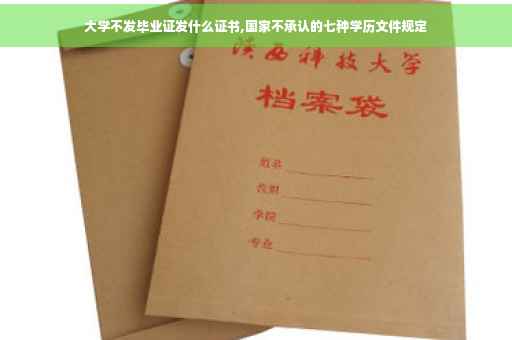 大学不发毕业证发什么证书,国家不承认的七种学历文件规定
陕西科技大学
档案袋
姓名
学院
专业